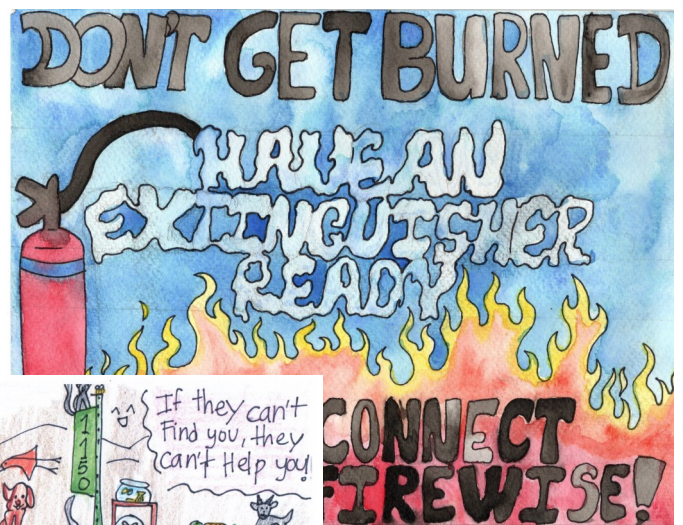 DON'T GET BURNED
HAVE AN
EXTINGUISHER
READY
CONNECT
FIREWISE!
If they can't
Find you, they
can't Help you!
1150